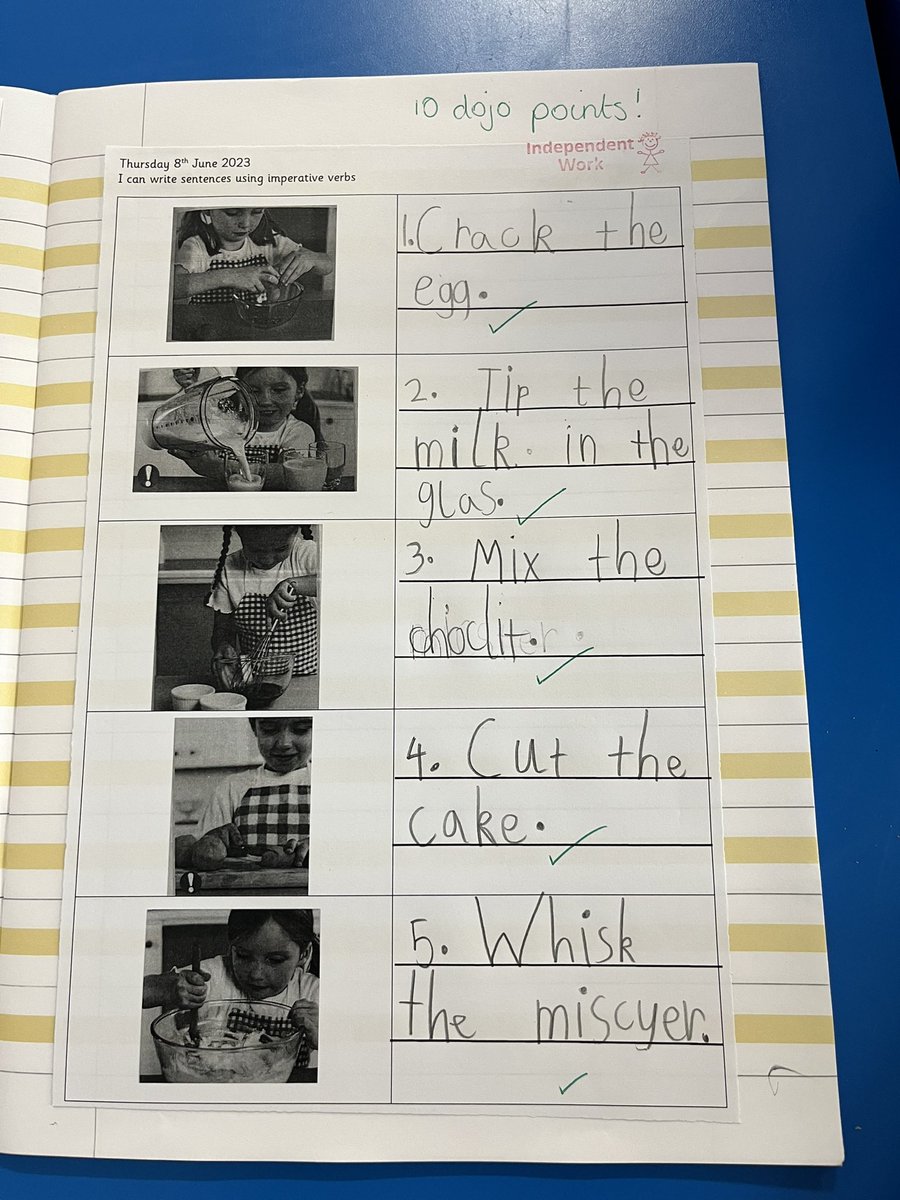 10 dojo points!
Independent
Work
Thursday 8th June 2023
I can write sentences using imperative verbs
1. Crack the
egg.
2. Tip the
milk. in the
glas.
3. Mix the
!
4. Cut the
cake.
!
5. Whisk
the miscyer.